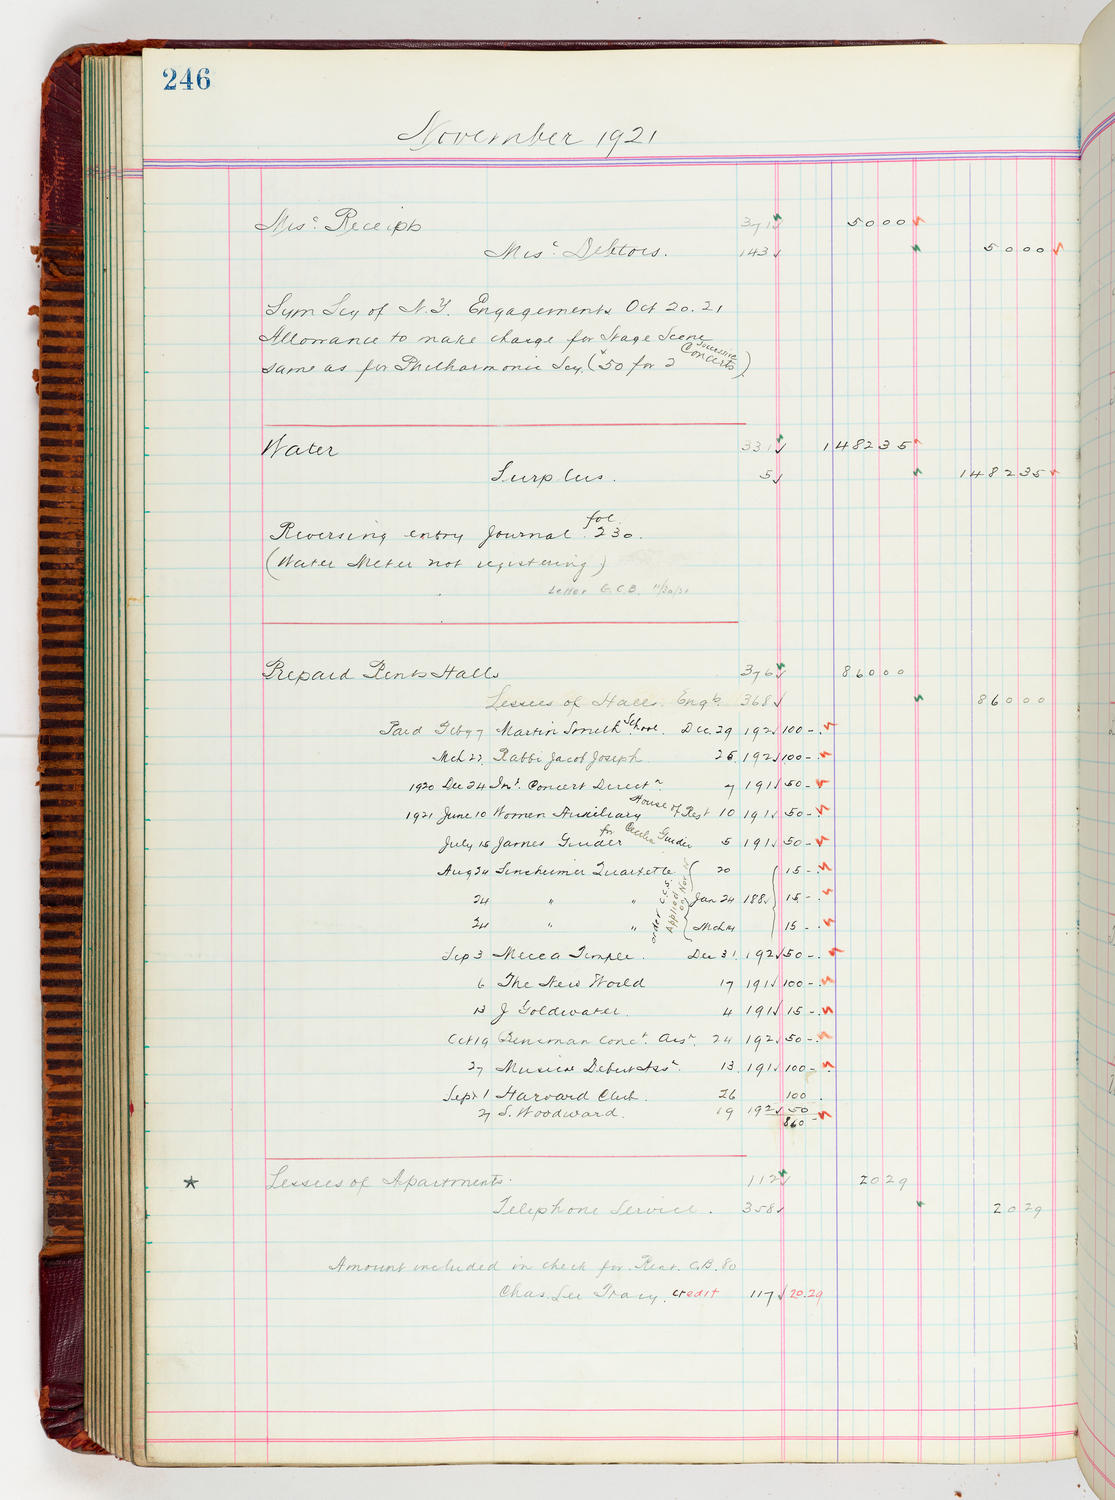 246
November 1921
Misc. Receipts 371 50 00
Misc. Debtors. 143 50 00
Sym Scy of N.Y. Engagements Oct 20. 21
Allowance to make charge for Stage Scene
same as for Philharmonic Scy. ($50 for 2 Concerts)
Water 331 1482 35
Surplus. 5 1482 35
Reversing entry Journal fol. 230.
(Water Meter not registering)
Letter G.C.B. 11/30/21
Prepaid Rents Halls 376 860 00
Lessees of Halls. Eng's 368 860 00
Paid Feby 7 Martin Smith School. Dec. 29 192 100 -
Mch 22 Rabbi Jacob Joseph 25 192 100 -
1920 Dec 24 Int. Concert Direct'n 7 191 50 -
1921 June 10 Women Auxiliary House of Rest 10 191 50 -
July 15 James Guider for Cecelia Guider 5 191 50 -
Aug 24 Sinsheimer Quartette 20 15 -
24 " " Jan 24 188 15 -
24 " " Mch 14 15 -
order C.C.S. Applied on Nov
Sep 3 Mecca Temple. Dec 31 192 50 -
6 The New World 17 191 100 -
13 J Goldwater. 4 191 15 -
Oct 19 Conc't. Ass'n. 24 192 50 -
27 Musical Debut Ass'n. 13 191 100 -
Sept 1 Harvard Club. 26 100
27 S. Woodward. 19 192 50
860 -
Lessees of Apartments. 112 20 29
Telephone Service. 358 20 29
Amount included in check for Rent. C.B. 80
Chas. Lee Tracy. credit 117 20.29